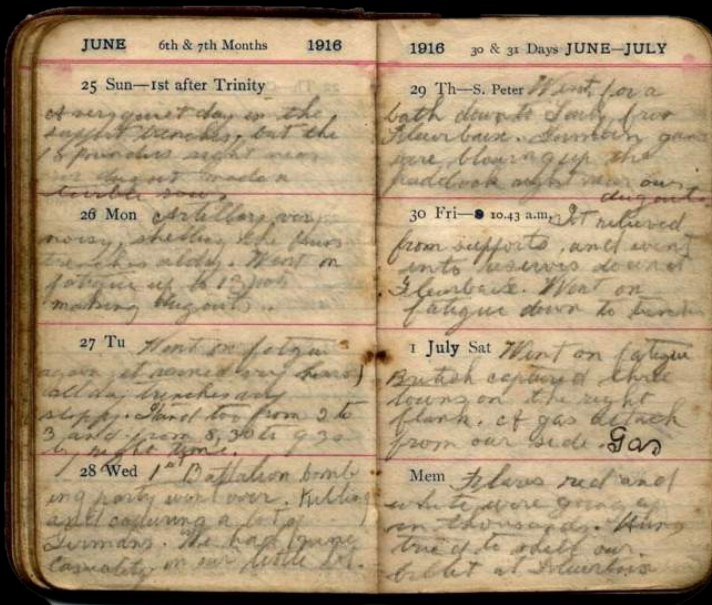 JUNE 6th & 7th Months 1916
25 Sun—1st after Trinity
A very quiet day in the
support trenches, but the
18 pounders right near
our dugout made a
terrible row.
26 Mon Artillery very
noisy, shelling the
trenches all day. Went on
fatigue up to
making dugouts.
27 Tu Went on fatigue
again it rained very hard
all day trenches very
sloppy. Stand too from 2 to
3 and from 8,30 to 9 30
by night time.
28 Wed 1st Battalion bomb
ing party went over. Killing
and capturing a lot of
Germans. We had
casualty on our little lot.
1916 30 & 31 Days JUNE—JULY
29 Th—S. Peter Went for a
bath down to Sailly from
Fleurbaix. German guns
were blowing up the
paddock right near our
dugouts
30 Fri— 10.43 a.m. Got relieved
from supports, and went
into reserves down at
Fleurbaix. Went on
fatigue down to
1 July Sat Went on fatigue
British captured three
towns on the right
flank. A gas attack
from our side. Gas
Mem Flares red and
white were going up
in thousands. Huns
tried to shell our
billet at Fleurbaix